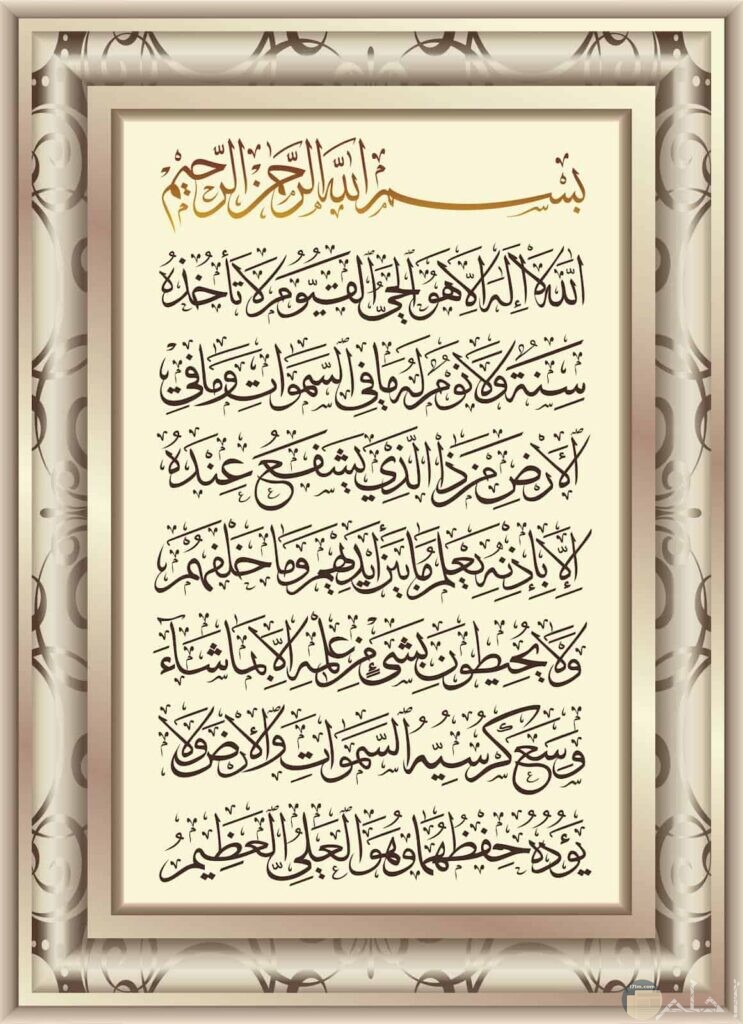 بِسْمِ اللَّهِ الرَّحْمَٰنِ الرَّحِيمِ
اللَّهُ لَا إِلَٰهَ إِلَّا هُوَ الْحَيُّ الْقَيُّومُ لَا تَأْخُذُهُ
سِنَةٌ وَلَا نَوْمٌ لَهُ مَا فِي السَّمَوَاتِ وَمَا فِي
الْأَرْضِ مَنْ ذَا الَّذِي يَشْفَعُ عِنْدَهُ
إِلَّا بِإِذْنِهِ يَعْلَمُ مَا بَيْنَ أَيْدِيهِمْ وَمَا خَلْفَهُمْ
وَلَا يُحِيطُونَ بِشَيْءٍ مِنْ عِلْمِهِ إِلَّا بِمَا شَاءَ
وَسِعَ كُرْسِيُّهُ السَّمَوَاتِ وَالْأَرْضَ وَلَا
يَؤُدُهُ حِفْظُهُمَا وَهُوَ الْعَلِيُّ الْعَظِيمُ